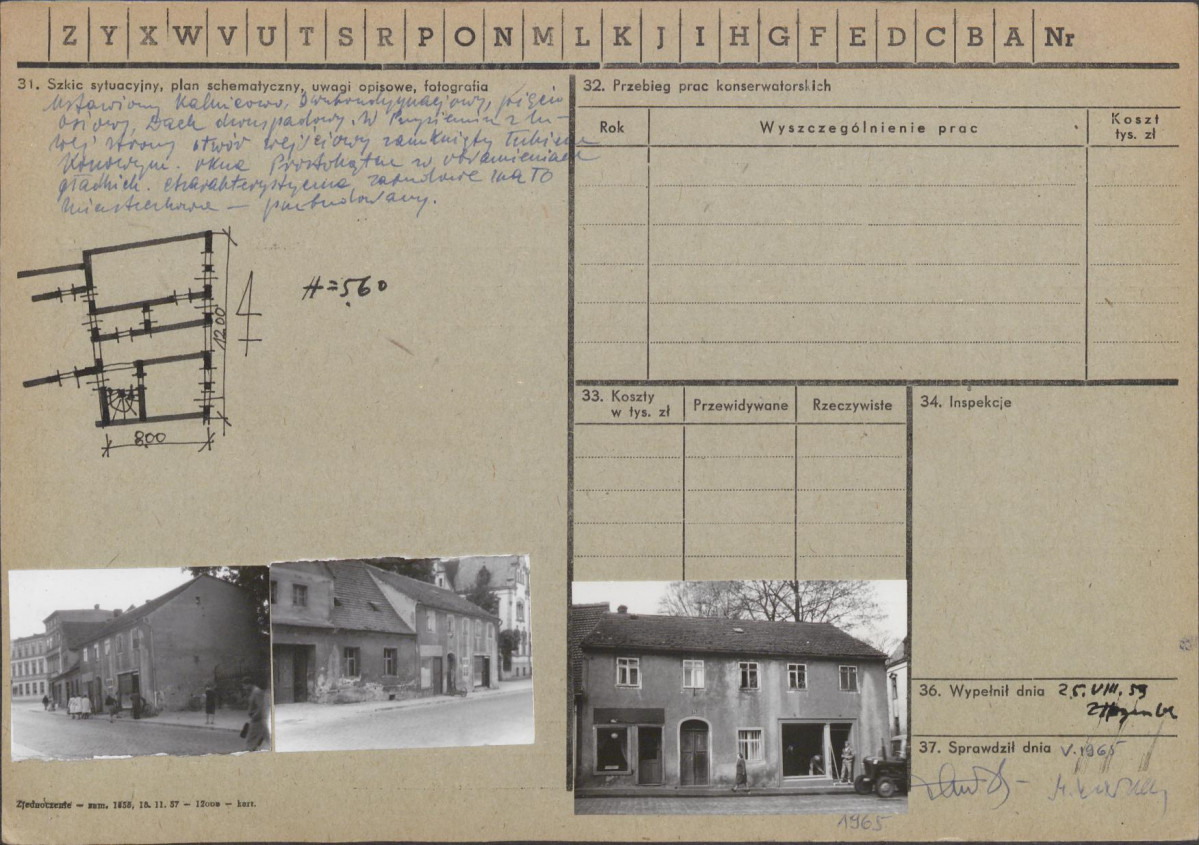 Z Y X W V U T S R P O N M L K J I H G F E D C B A Nr
31. Szkic sytuacyjny, plan schematyczny, uwagi opisowe, fotografia
Ustawiony kalenicowo, dwukondygnacjowy, pięcio
osiowy, Dach dwuspadowy. W Przyziemiu z le-
wej strony otwór wejściowy zamknięty łukiem
Koszowym. okna Prostokątne w obramieniach
gładkich. charakterystyczna zabudowa mało
miasteczkowa — przebudowany.
H = 560
1200
800
32. Przebieg prac konserwatorskich
Rok
Wyszczególnienie prac
Koszt
tys. zł
33. Koszty
w tys. zł
Przewidywane
Rzeczywiste
34. Inspekcje
36. Wypełnił dnia 25. VIII. 59
37. Sprawdził dnia V. 1965
1965
Zjednoczenie — zam. 1858, 18. 11. 57 — 12000 — kart.